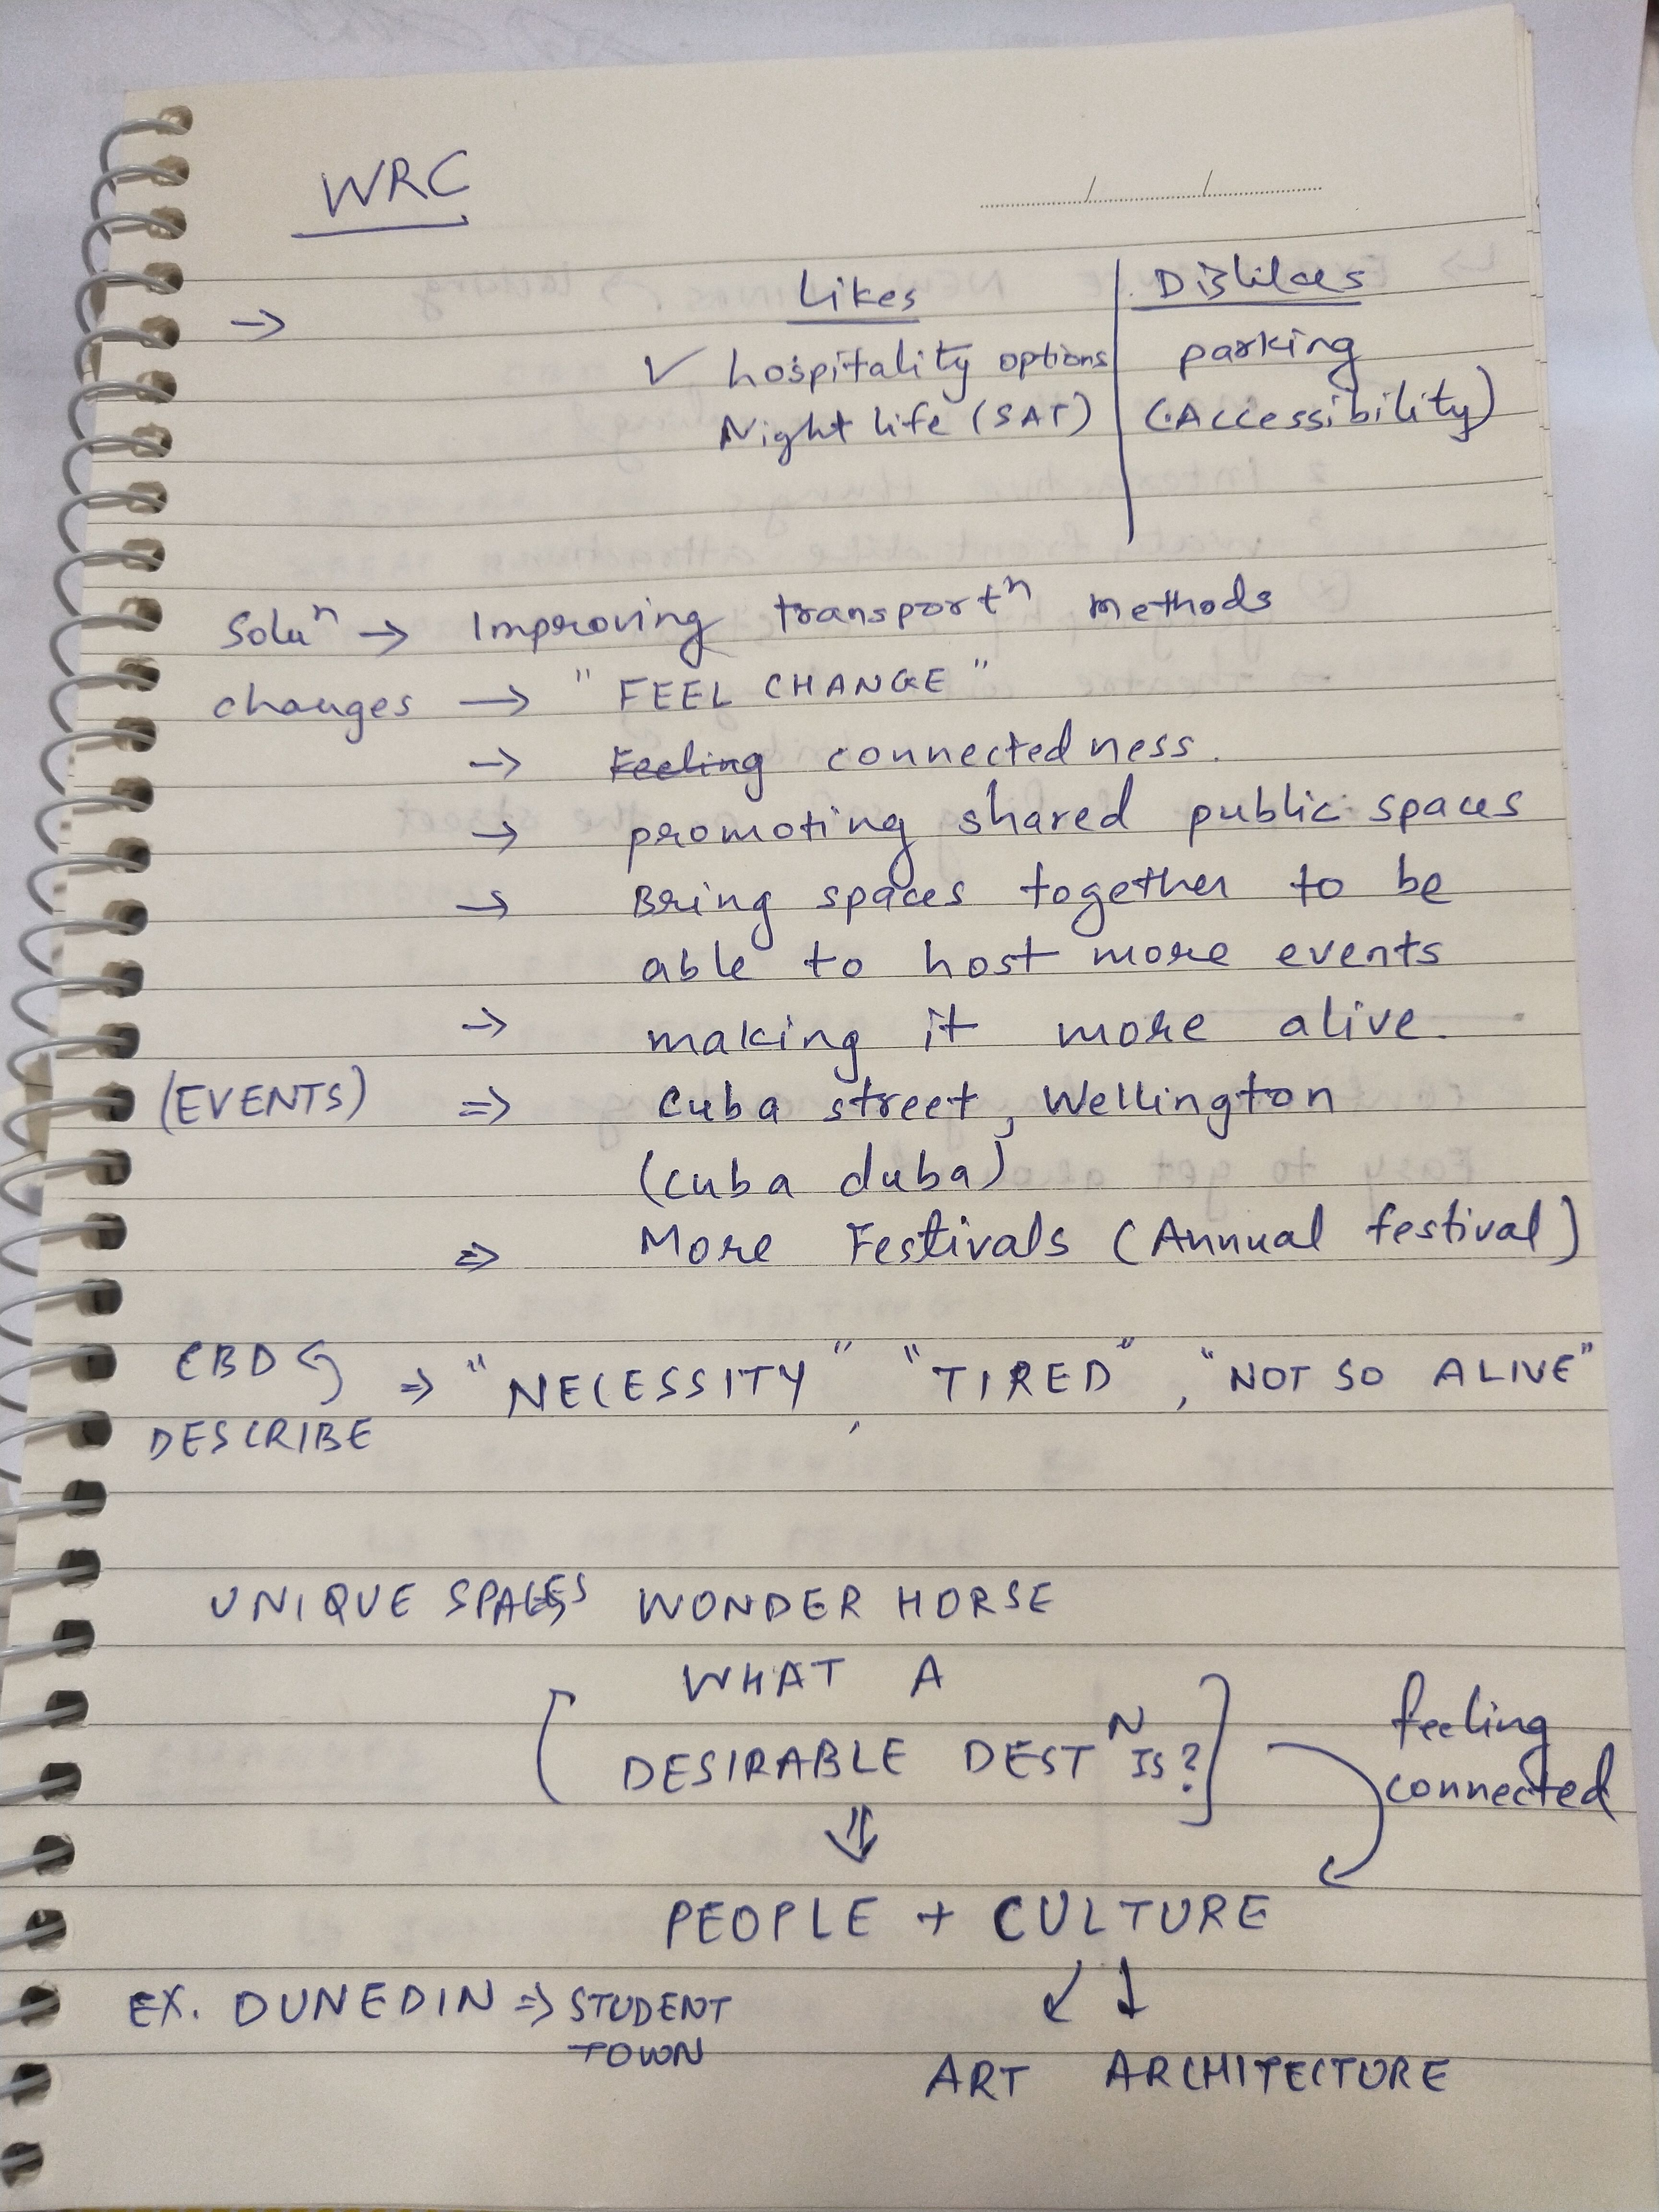 WRC
Likes | Dislikes
→ ✓ hospitality options | parking
Night life (SAT) | (Accessibility)
Soluⁿ → Improving transportⁿ methods
changes → "FEEL CHANGE"
→ Feeling connectedness.
→ promoting shared public spaces
→ Bring spaces together to be
able to host more events
→ making it more alive.
(EVENTS) ⇒ Cuba street, Wellington
(cuba duba)
⇒ More Festivals (Annual festival)
CBD ⇒ "NECESSITY", "TIRED", "NOT SO ALIVE"
DESCRIBE
UNIQUE SPACES WONDER HORSE
WHAT A
DESIRABLE DESTᴺ IS?
feeling
connected
⇓
PEOPLE + CULTURE
EX. DUNEDIN ⇒ STUDENT
TOWN
↙ ↓
ART ARCHITECTURE